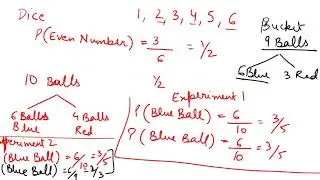 Dice
1, 2, 3, 4, 5, 6
P(Even Number) = 3/6 = 1/2
Bucket
9 Balls
6 Blue 3 Red
10 Balls
1/2
6 Balls
Blue
4 Balls
Red
Experiment 1
P(Blue Ball) = 6/10 = 3/5
P(Blue Ball) = 6/10 = 3/5
periment 2
(Blue Ball) = 6/10 = 3/5
(Blue Ball) = 6/9 = 2/3